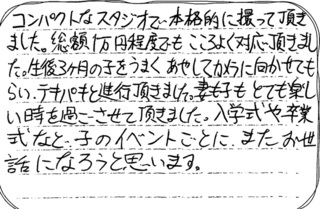 コンパクトなスタジオで本格的に撮って頂き
ました。総額1万円程度でもこころよく対応頂きまし
た。生後3ヶ月の子をうまくあやしてカメラに向かせても
らい、テキパキと進行頂きました。妻も子もとても楽し
い時を過ごさせて頂きました。入学式や卒業
式など、子のイベントごとに、またお世
話になろうと思います。